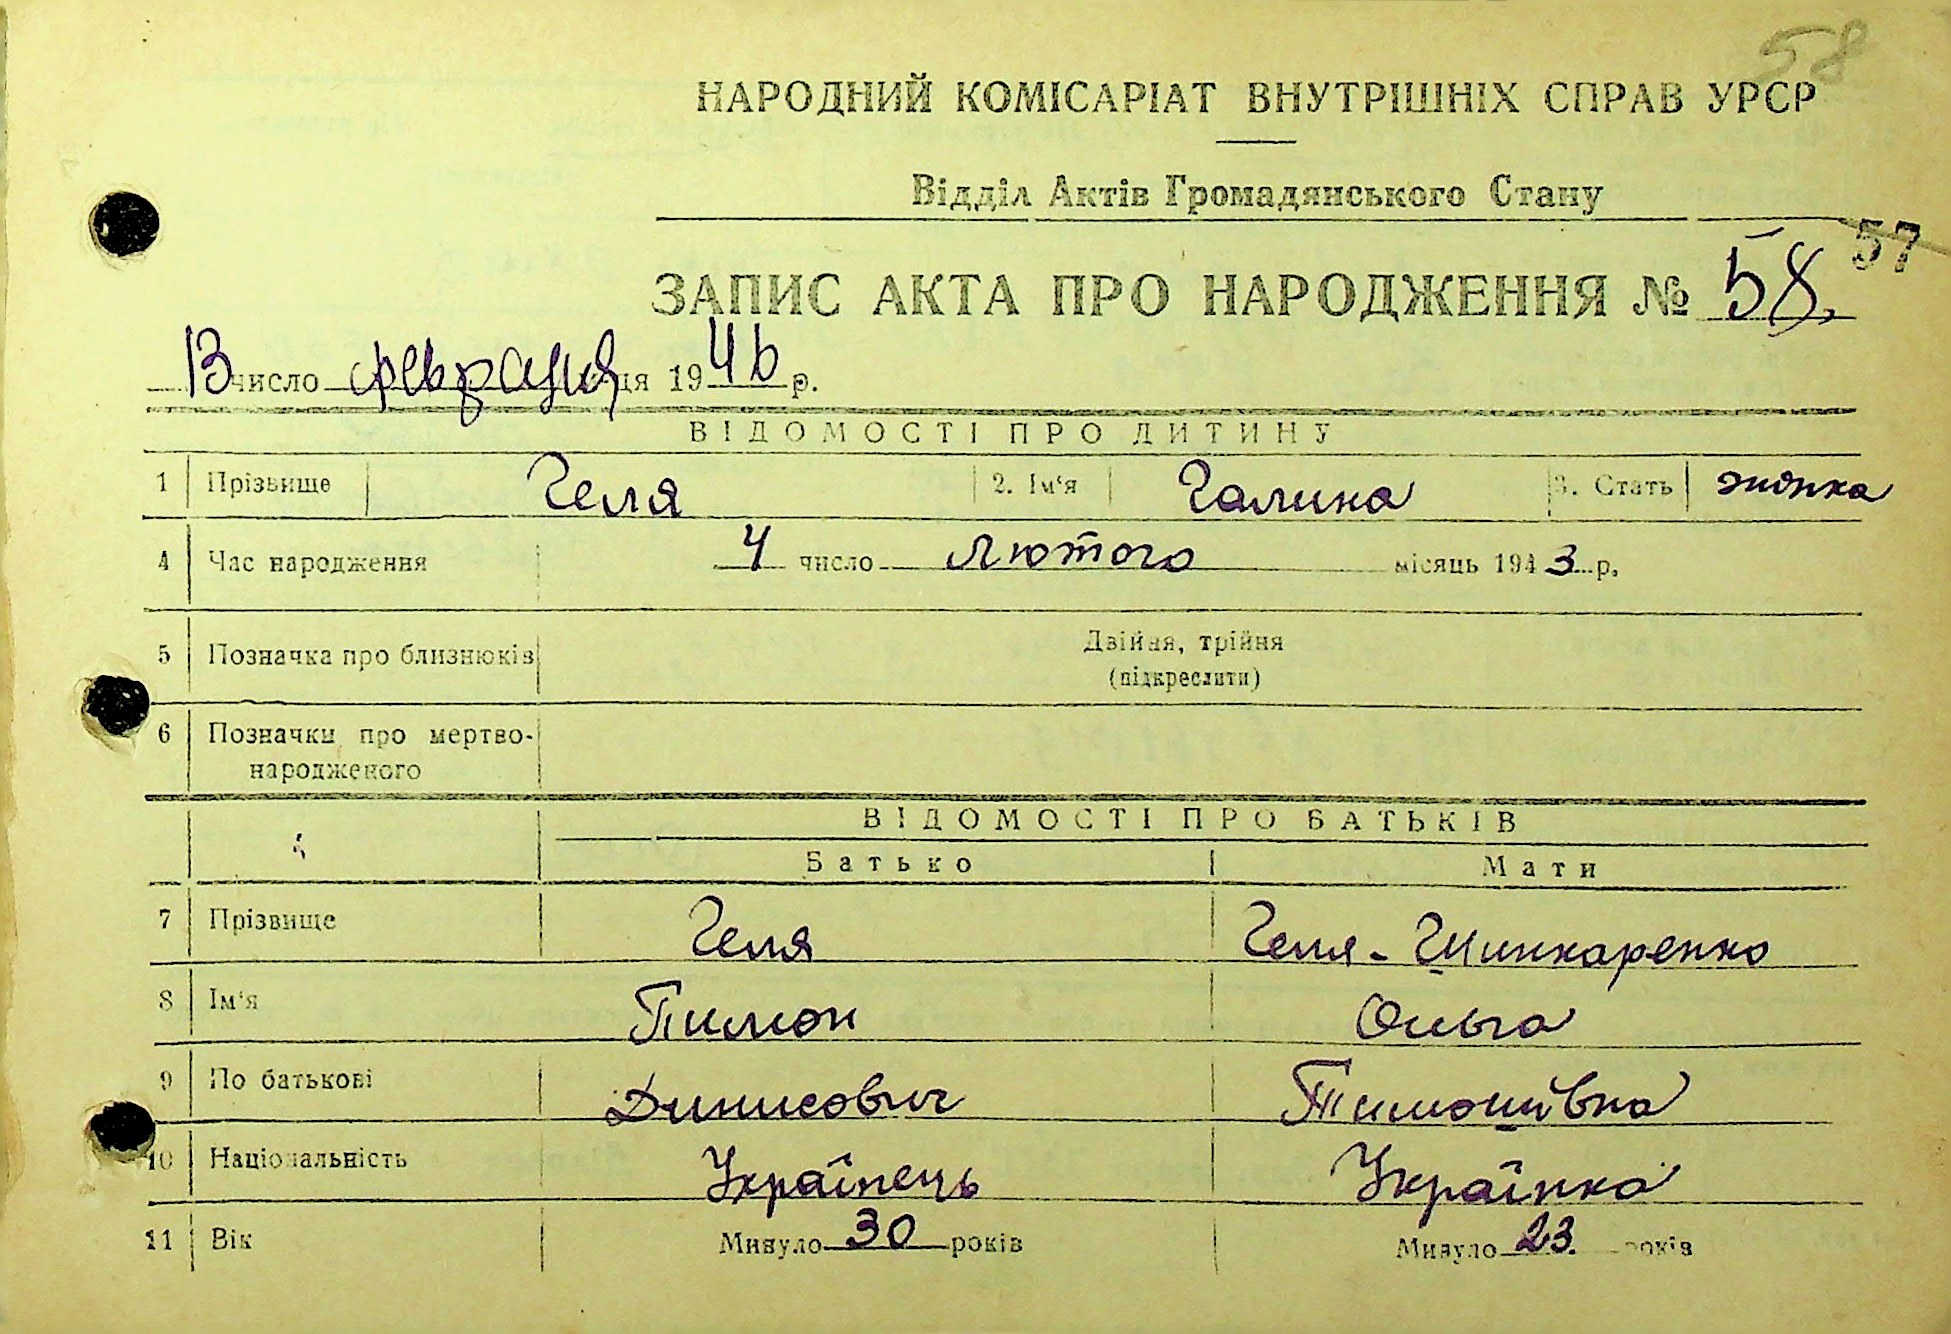 58
НАРОДНИЙ КОМІСАРІАТ ВНУТРІШНІХ СПРАВ УРСР
Відділ Актів Громадянського Стану
57
ЗАПИС АКТА ПРО НАРОДЖЕННЯ № 58
13 число февраля ця 1946 р.
ВІДОМОСТІ ПРО ДИТИНУ
1 Прізвище Геля 2. Ім'я Галина 3. Стать жінка
4 Час народження 4 число Лютого місяць 1943 р.
5 Позначка про близнюків Двійня, трійня
(підкреслити)
6 Позначки про мертво-
народженого
ВІДОМОСТІ ПРО БАТЬКІВ
Батько Мати
7 Прізвище Геля Геля-Шинкаренко
8 Ім'я Тимон Ольга
9 По батькові Динисович Тимошівна
10 Національність Українець Українка
11 Вік Минуло 30 років Минуло 23 років